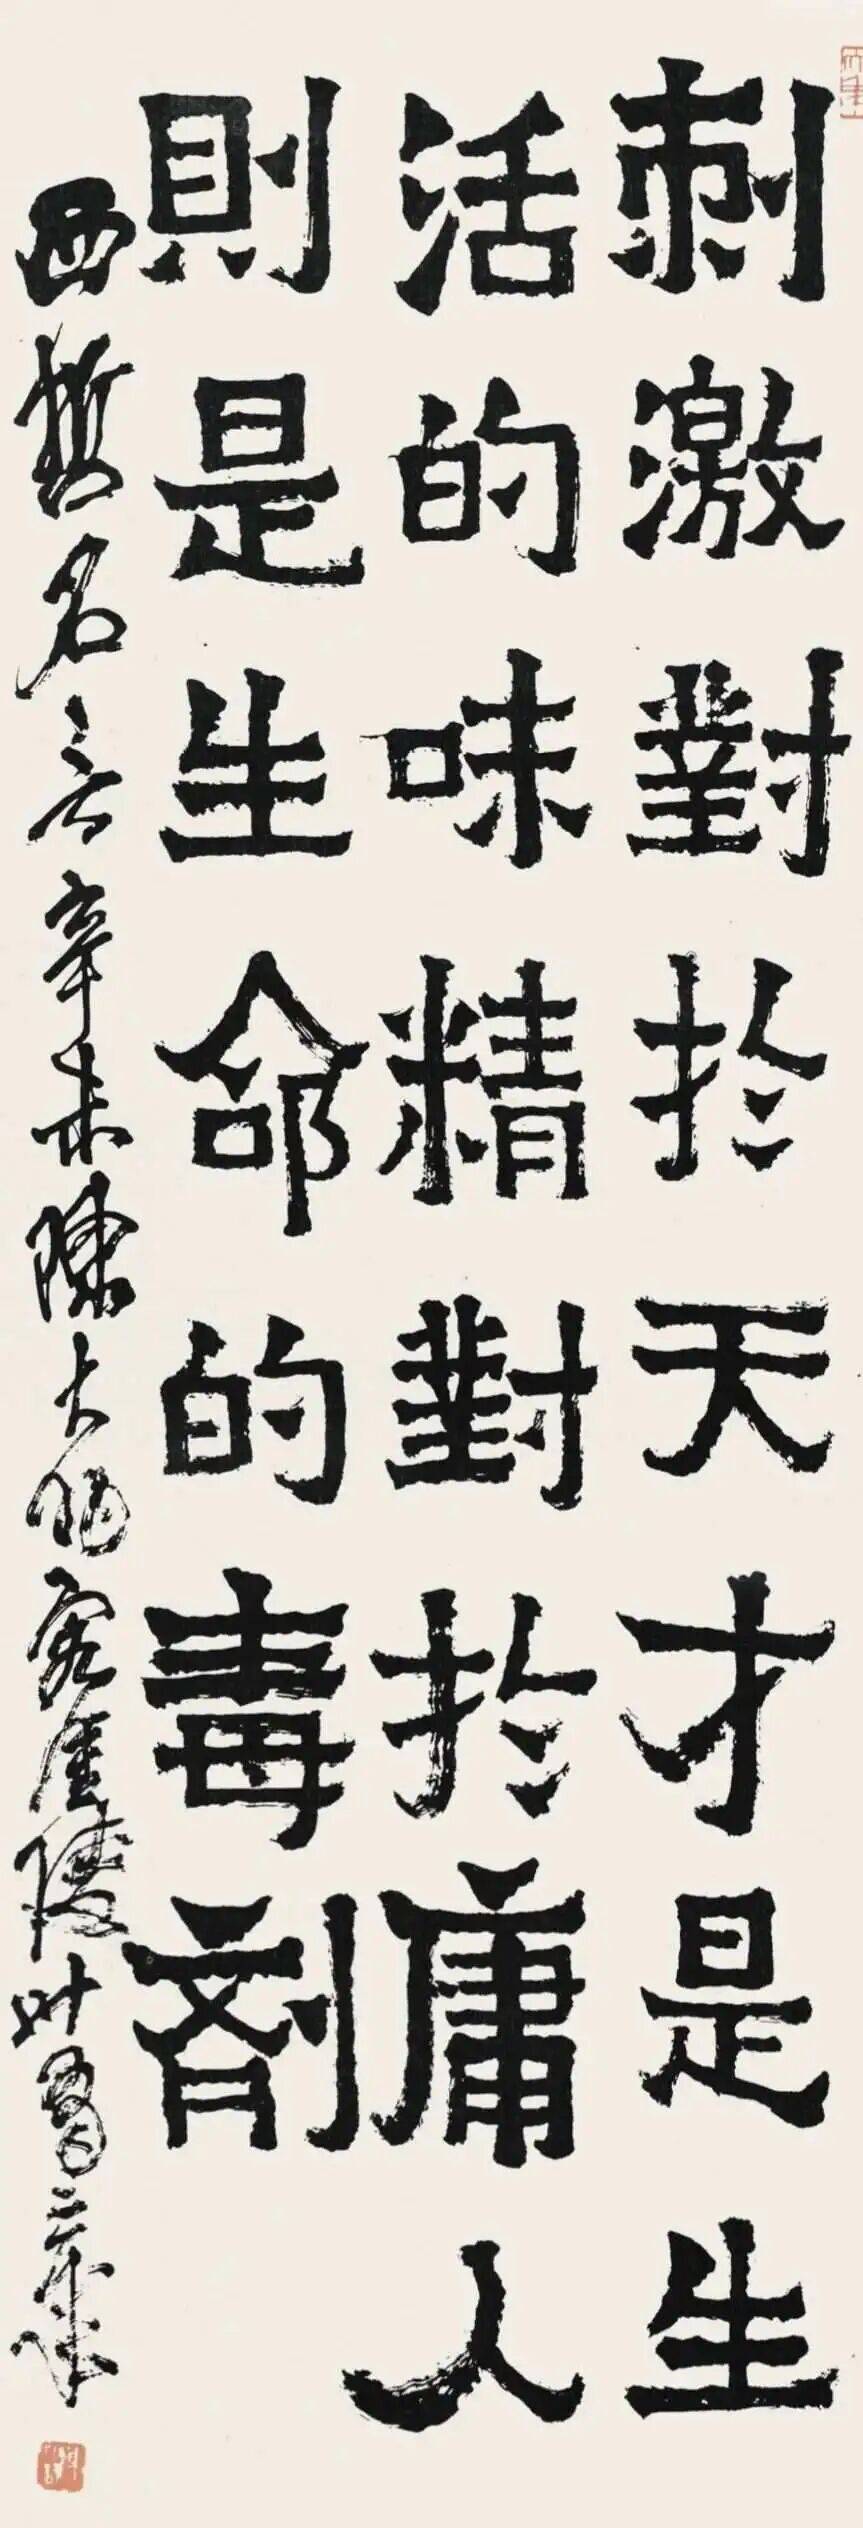 刺激對於天才是生
活的味精對於庸人
則是生命的毒劑
西哲名言辛未陳大羽客金陵時年八十